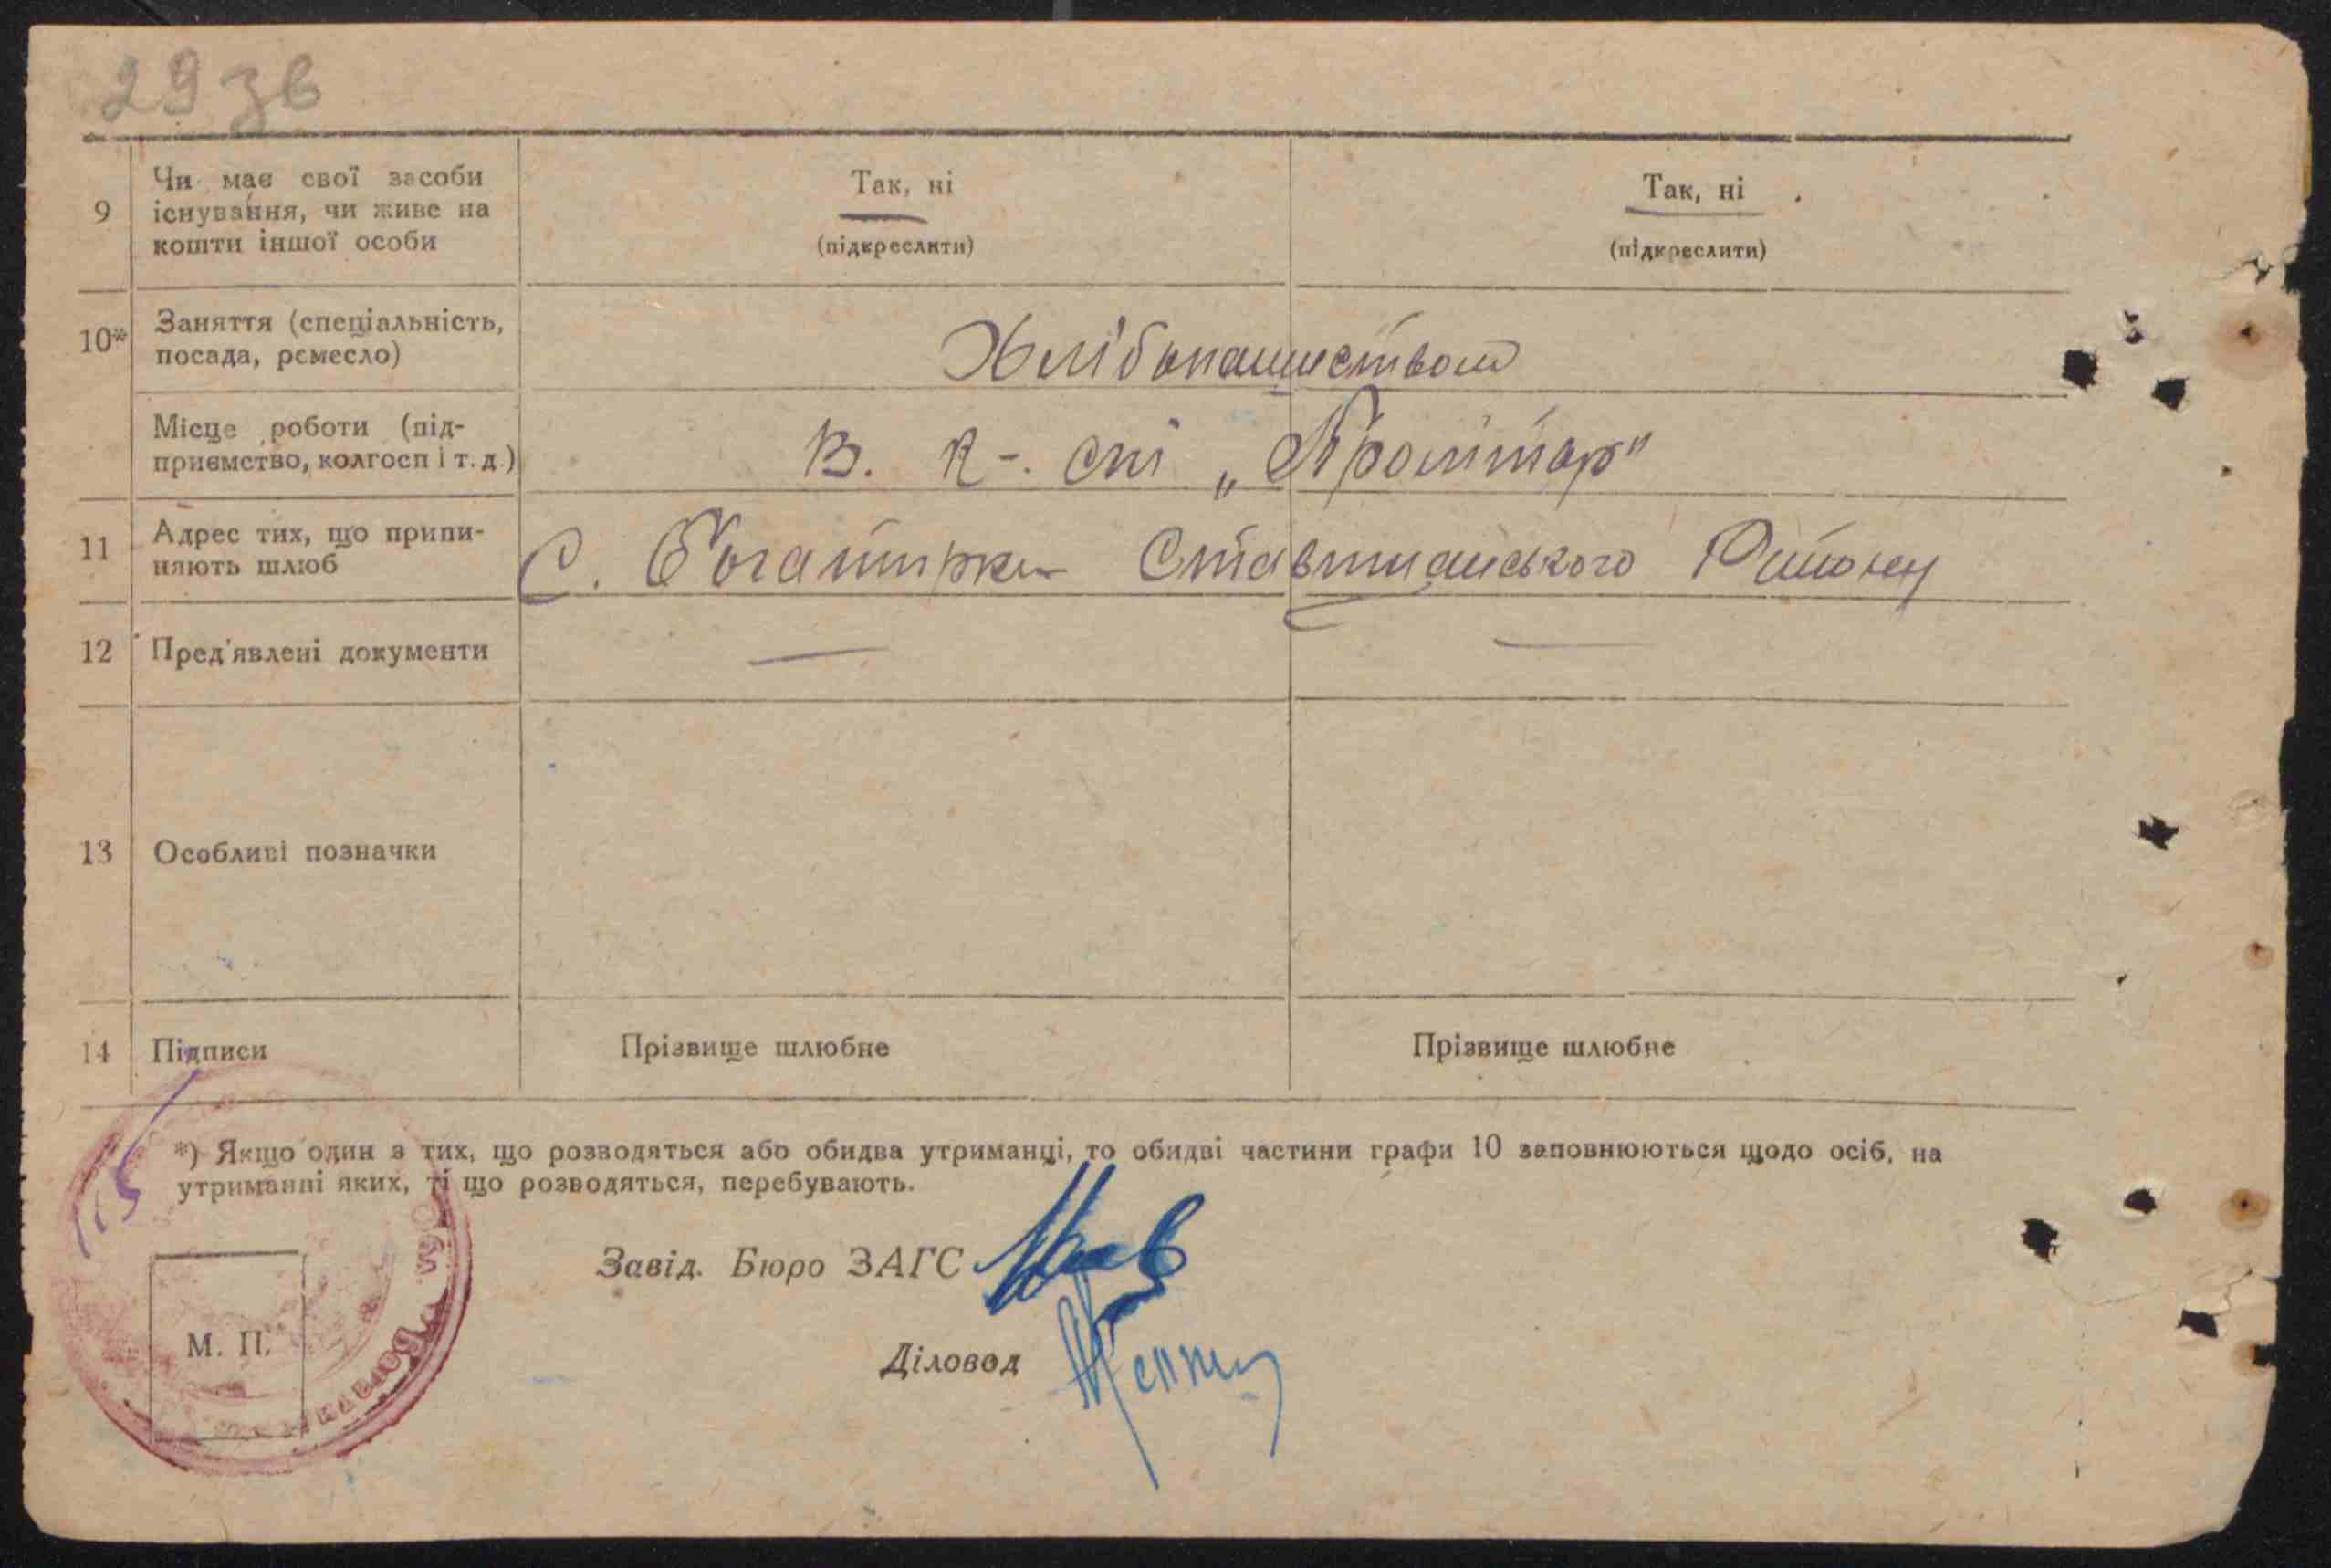 29 зв
9 Чи має свої засоби існування, чи живе на кошти іншої особи
Так, ні
(підкреслити)
Так, ні
(підкреслити)
10* Заняття (спеціальність, посада, ремесло)
Хлібопашеством
Місце роботи (підприємство, колгосп і т. д.)
В. к-. сті „Пролітар"
11 Адрес тих, що припиняють шлюб
С. Богатирка Ставищанського Району
12 Пред'явлені документи
13 Особливі позначки
14 Підписи
Прізвище шлюбне
Прізвище шлюбне
*) Якщо один з тих, що розводяться або обидва утриманці, то обидві частини графи 10 заповнюються щодо осіб, на
утриманні яких, ті що розводяться, перебувають.
Завід. Бюро ЗАГС
Діловод
М. П.